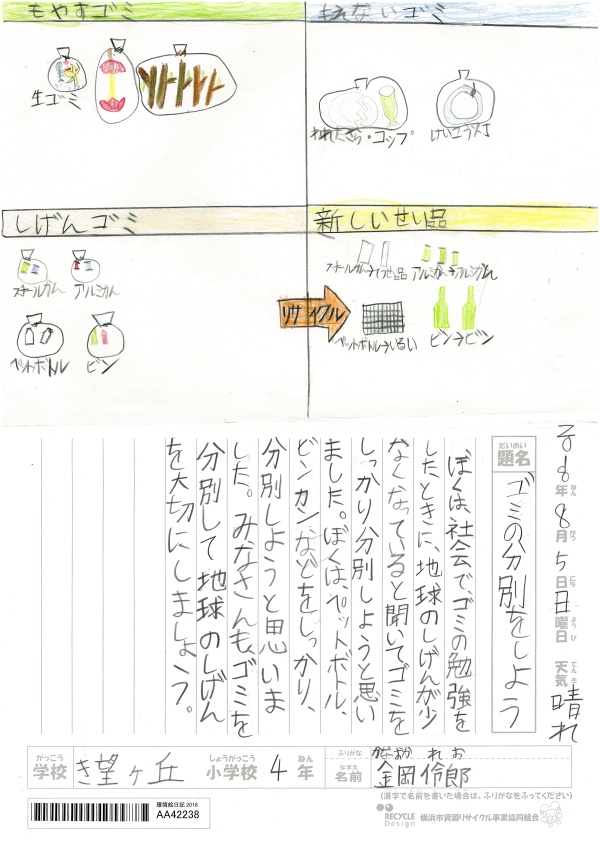 もやすゴミ
生ゴミ
もえないゴミ
われたさら・コップ
けいこう灯
しげんゴミ
スチールかん
アルミかん
ペットボトル
ビン
新しいせい品
スチールかん→てつせい品
アルミかん→アルミかん
リサイクル
ペットボトル→いるい
ビン→ビン
年 8月5日 日曜日 天気 晴れ
ねん がつ にち ようび てんき
だいめい
題名
ゴミの分別をしよう
ぼくは、社会で、ゴミの勉強を
したときに、地球のしげんが少
なくなっていると聞いてゴミを
しっかり分別しようと思い
ました。ぼくは、ペットボトル、
ビンカン、などをしっかり、
分別しようと思いま
した。みなさんも、ゴミを
分別して地球のしげん
を大切にしましょう。
がっこう しょうがっこう ねん
学校 き望ヶ丘 小学校 4年
ふりがな かなおか れお
なまえ
名前 金岡 伶郎
(漢字で名前を書いた場合は、ふりがなをふってください)
環境絵日記2018
AA42238
RECYCLE Design
横浜市資源リサイクル事業協同組合